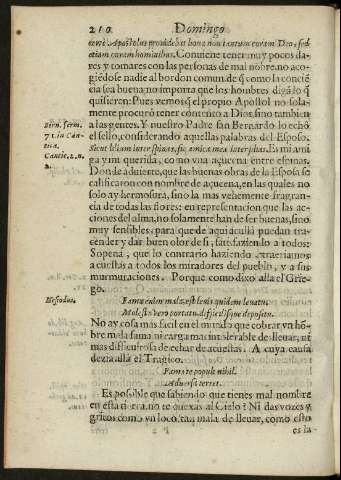 210. Domingo
Apostolus providebat bona non tantum coram Deo, sed
etiam coram hominibus. Conuiene tener muy pocos da-
res y tomares con las personas de mal nõbre. no aco-
giẽdose nadie al bordon comun. de q̃ como la conciẽ
cia sea buena no importa que los hombres digã lo q̃
quisieren: Pues vemos q̃ el propio Apostol no sola-
mente procurò tener contento a Dios, sino tambien
Bern. serm. a las gentes. Y nuestro Padre san Bernardo lo echò
71. in Can- el sello, considerando aquellas palabras del Esposo.
tica. Sicut lilium inter spinas, sic amica mea inter filias. Es mi ami
Cantic. 2. n. ga y mi querida, como vna açucena entre espinas.
2. Donde aduierte, que las buenas obras de la Esposa se
calificaron con nombre de açucena, en las quales no
solo ay hermosura, sino la mas vehemente fragran-
cia de todas las flores: en representacion que las ac-
ciones del alma, no solamente han de ser buenas, sino
muy sensibles, para que de aqui acullà puedan tras-
cender y dar buen olor de si, satisfaziendo a todos:
Sopena, que lo contrario haziendo, traeriamos
a cuestas a todos los miradores del pueblo, y a sus
murmuraciones. Porque como dixo allà el Grie-
go.
Hesiodus. Fama enim mala est leuis quidem leuatu,
Molesta vero portatu, difficilisque depositu.
No ay cosa mas facil en el mundo que cobrar vn hõ-
bre mala fama ni carga mas intolerable de lleuar, ni
mas dificultosa de echar de acuestas. A cuya causa
dezia allà el Tragico.
Fama te populi nihil.
Aduersa terret.
Es possible que sabiendo que tienes mal nombre
en esta tierra, no te quexas al Cielo? Ni das vozes y
gritos como vn loco, tan mala de lleuar, como esto
es la